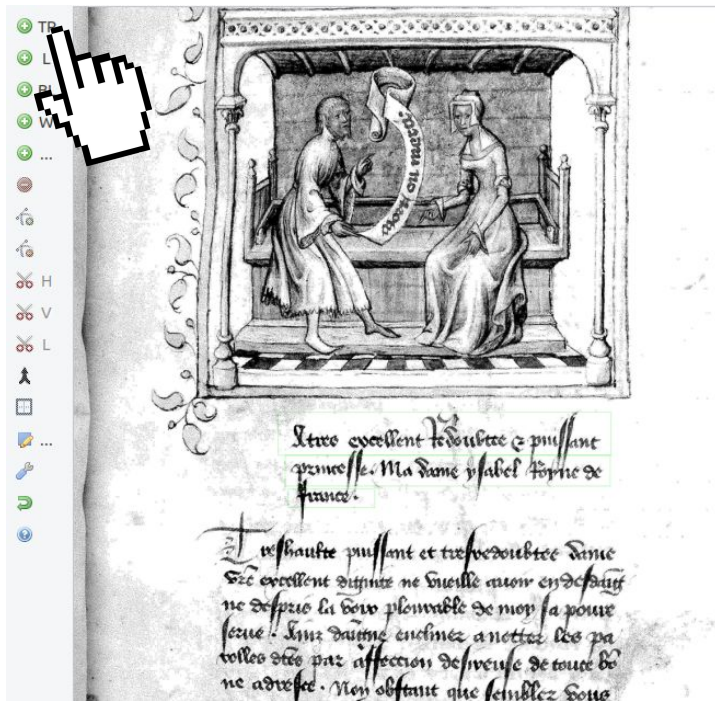 TR
L
W
...
H
V
L
...
A tres excellent Redoubtee & puissant
princesse. Ma dame ysabel Royne de
france.
Treshaulte puissant et tresredoubtee dame
vre excellent dignite ne vueille auoir en desdaing
ne despris la voix plourable de moy sa poure
serue. Ains daigne encliner a notter les pa
rolles dtes par affection desireuse de toute bo
ne adresce. Non obstant que sembler vous